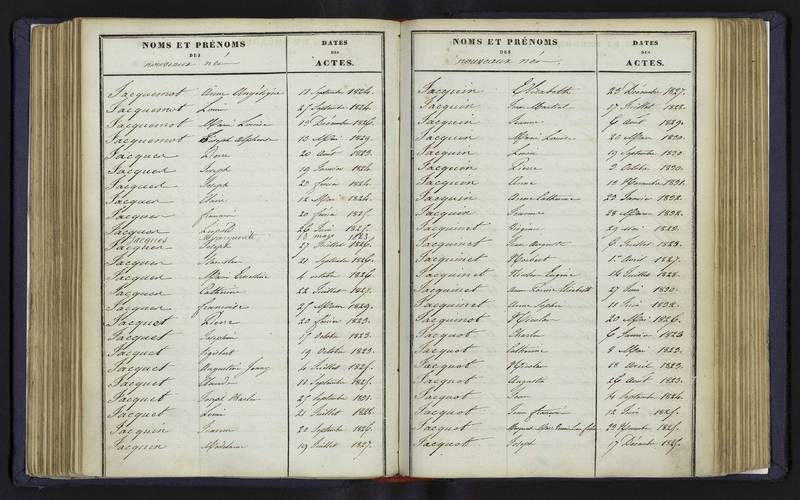 NOMS ET PRÉNOMS
DES
nouveaux nés
DATES
DES
ACTES.
Jacquemot Anne Angélique 11 Septembre 1824.
Jacquemot Louis 27 Septembre 1824.
Jacquemot Marie Louise Décembre 1826.
Jacquemot Joseph Alphonse 13 Mars 1829.
Jacquer Pierre 20 Août 1823.
Jacquer Joseph 19 Janvier 1824
Jacquer Joseph 29 février 1824.
Jacquer Claire 12 Mars 1824.
Jacquer françois 20 février 1825.
Jacquer Léopold 26 Juin 1825.
Jacques Marguerite 13 mars 1823
Jacquer Joseph 27 Juillet 1826.
Jacquer Stanislas 21 Septembre 1826.
Jacquer Marie 4 octobre 1826.
Jacquer Catherine 22 Juillet 1827.
Jacquer françoise 25 Mars 1829.
Jacquet Pierre 20 février 1823.
Jacquet Joséphine 17 Octobre 1823.
Jacquet 19 Octobre 1823.
Jacquet Augustin 4 Juillet 1825.
Jacquet Claude 11 Septembre 1825.
Jacquet Joseph 25 Septembre 1831.
Jacquet Louis 21 Juillet 1828.
Jacquin Jeanne 20 Septembre 1826.
Jacquin Madelaine 19 Juillet 1827.
NOMS ET PRÉNOMS
DES
nouveaux nés
DATES
DES
ACTES.
Jacquin Elisabeth 23 Décembre 1827.
Jacquin Jean Martial 17 Juillet 1828.
Jacquin Jeanne 6 Août 1829.
Jacquin Marie Louise 20 Mars 1830.
Jacquin Louis 19 Septembre 1830.
Jacquin Pierre 2 Octobre 1830.
Jacquin Anne Novembre 1831.
Jacquin Anne Catherine 23 Janvier 1832.
Jacquin Jeanne 28 Mars 1832.
Jacquinet 29 mai 1823.
Jacquinet Jean August 6 Juillet 1823.
Jacquinet Norbert 1er Avril 1827.
Jacquinet Nicolas Eugène 14 Juillet 1828.
Jacquinet Anne Elisabeth 27 Juin 1830.
Jacquinet Anne Sophie 11 Juin 1832.
Jacquinot Nicolas 20 Mai 1826.
Jacquot Charles 6 Janvier 1823
Jacquot Catherine 8 Mars 1823.
Jacquot Nicolas 18 Avril 1823.
Jacquot Auguste 26 Août 1823.
Jacquot Jean 14 Septembre 1824.
Jacquot Jean françois 12 Juin 1825.
Jacquot 29 Novembre 1825.
Jacquot Joseph 17 Décembre 1825.